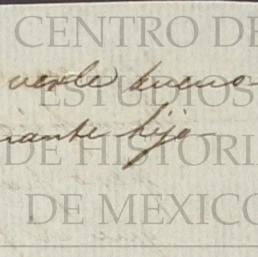 CENTRO DE
verle bueno
ESTUDIOS
hijo
DE HISTORI
DE MEXICO